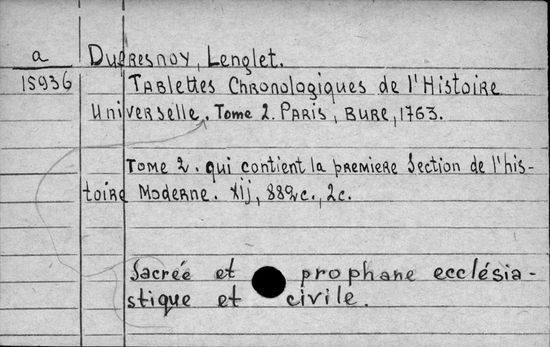 a Dufresnoy, Lenglet.
15936 Tablettes Chronologiques de l'Histoire
Universelle. Tome 2. Paris, Bure, 1763.
Tome 2. qui contient la premiere Section de l'his-
toire Moderne. Xij, 882c., 2c.
Sacrée et prophane ecclésia-
stique et civile.